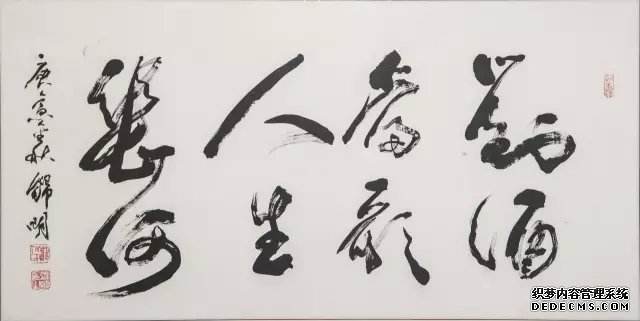 對酒
當歌
人生
幾何
庚寅秋明
织梦内容管理系统
DEDECMS.COM